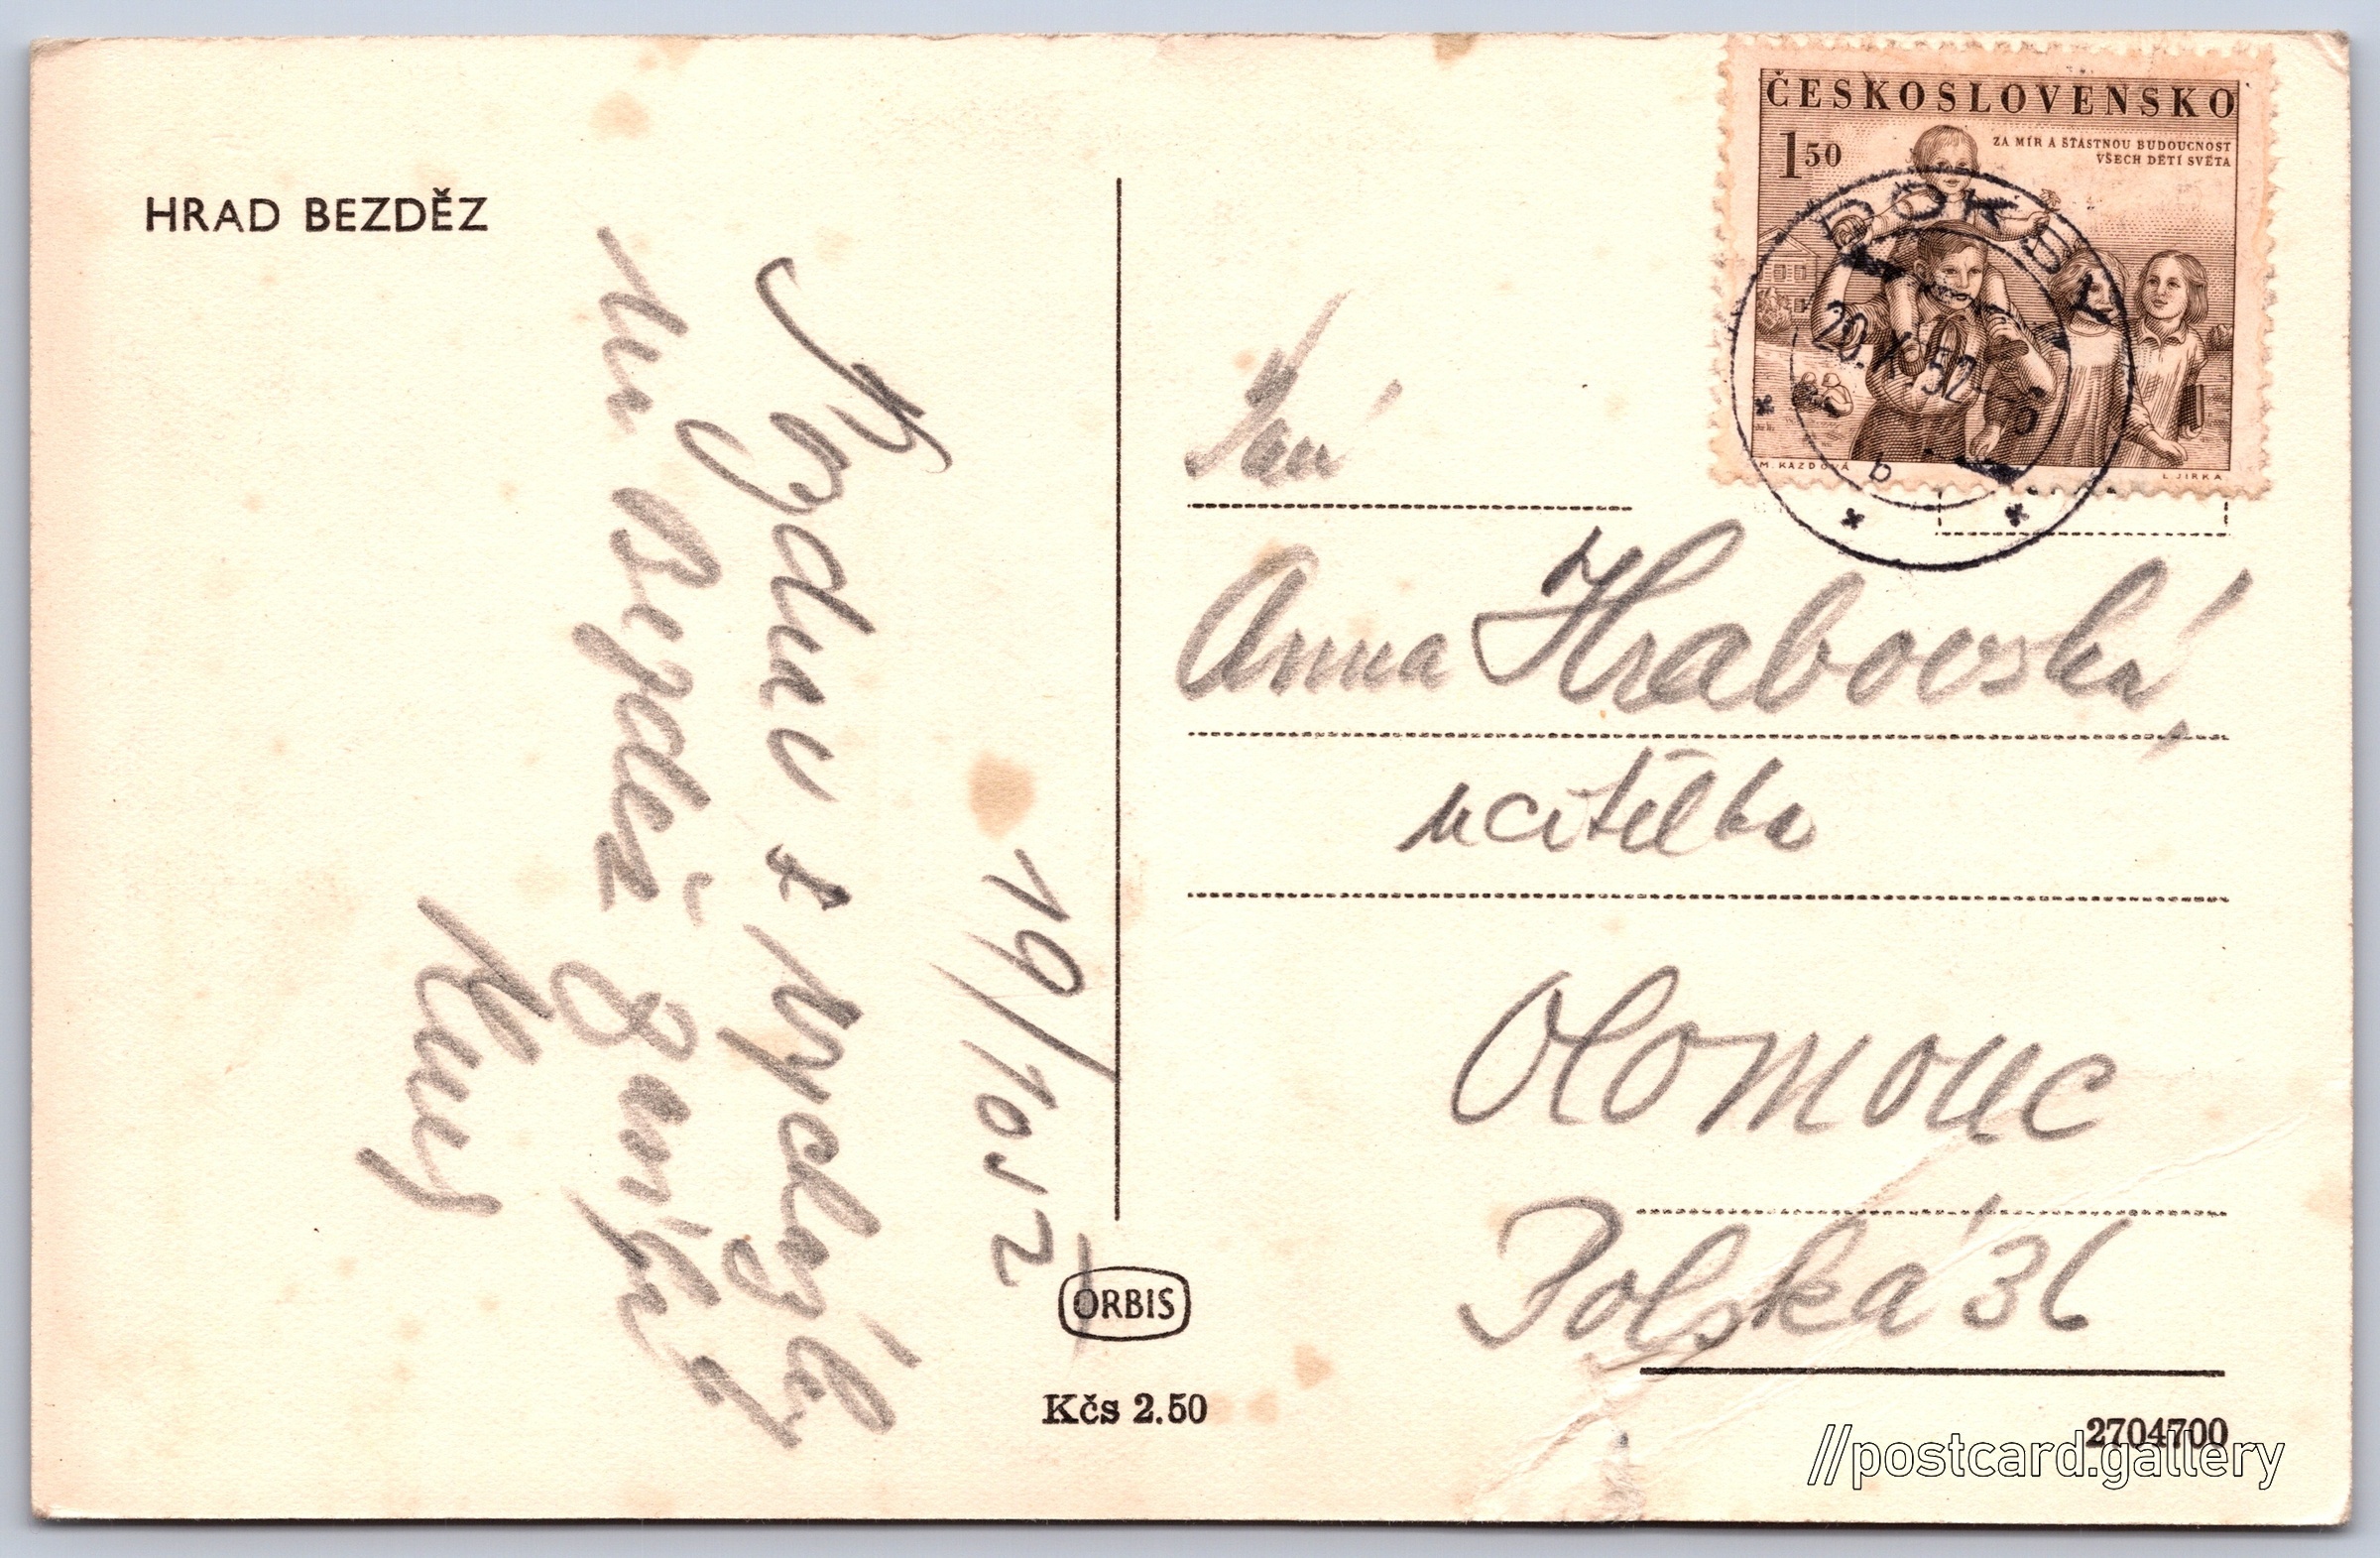 HRAD BEZDĚZ
19/10 52
Pozdrav s vycházky
na Bezděz
ČESKOSLOVENSKO
1 50
ZA MÍR A ŠŤASTNOU BUDOUCNOST
VŠECH DĚTÍ SVĚTA
M. KAZDOVÁ
L. JIRKA
DOKSY
20. X. 52
b
Paní
Anna Hrabovská,
ucitelka
Olomouc
Polská 36
ORBIS
Kčs 2.50
2704700
//postcard.gallery